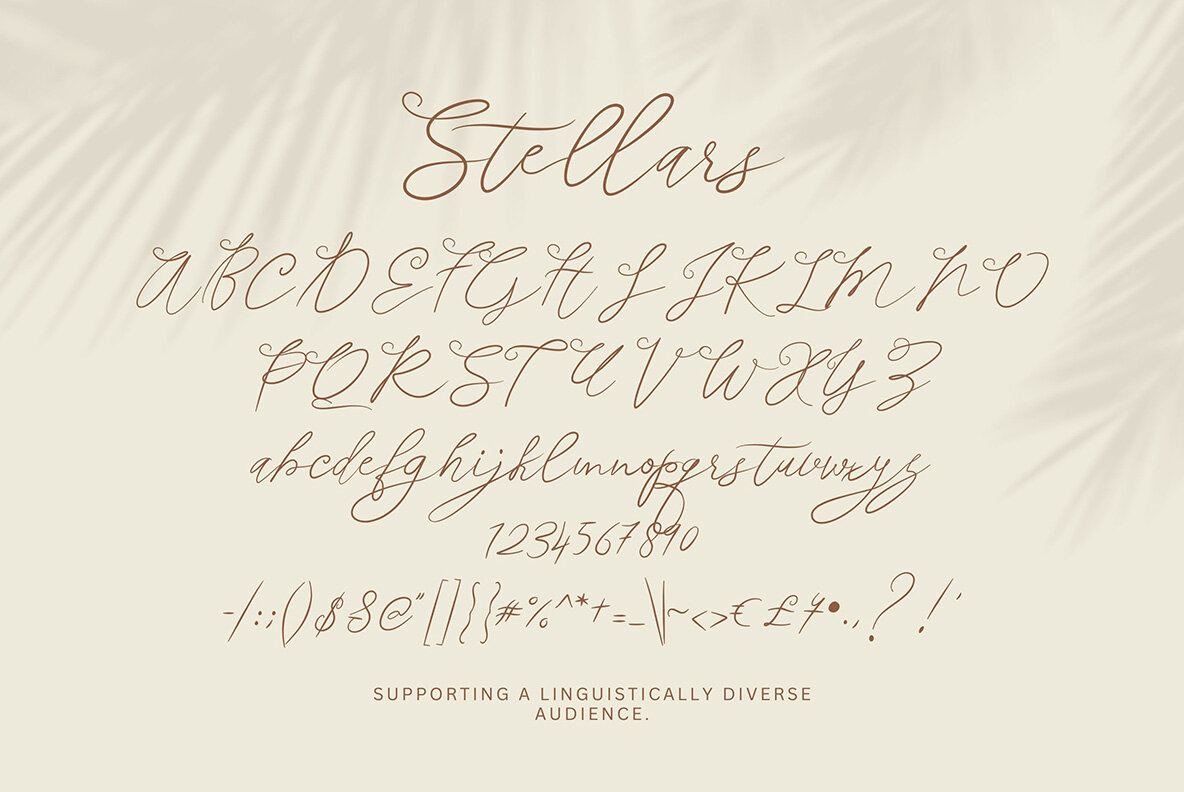 Stellars
ABCDEFGHIJKLMNO
PQRSTUVWXYZ
abcdefghijklmnopqrstuvwxyz
1234567890
-/:;()$&@"[]{}#%^*+=_\|~<>€£¥•.,?!'
SUPPORTING A LINGUISTICALLY DIVERSE
AUDIENCE.